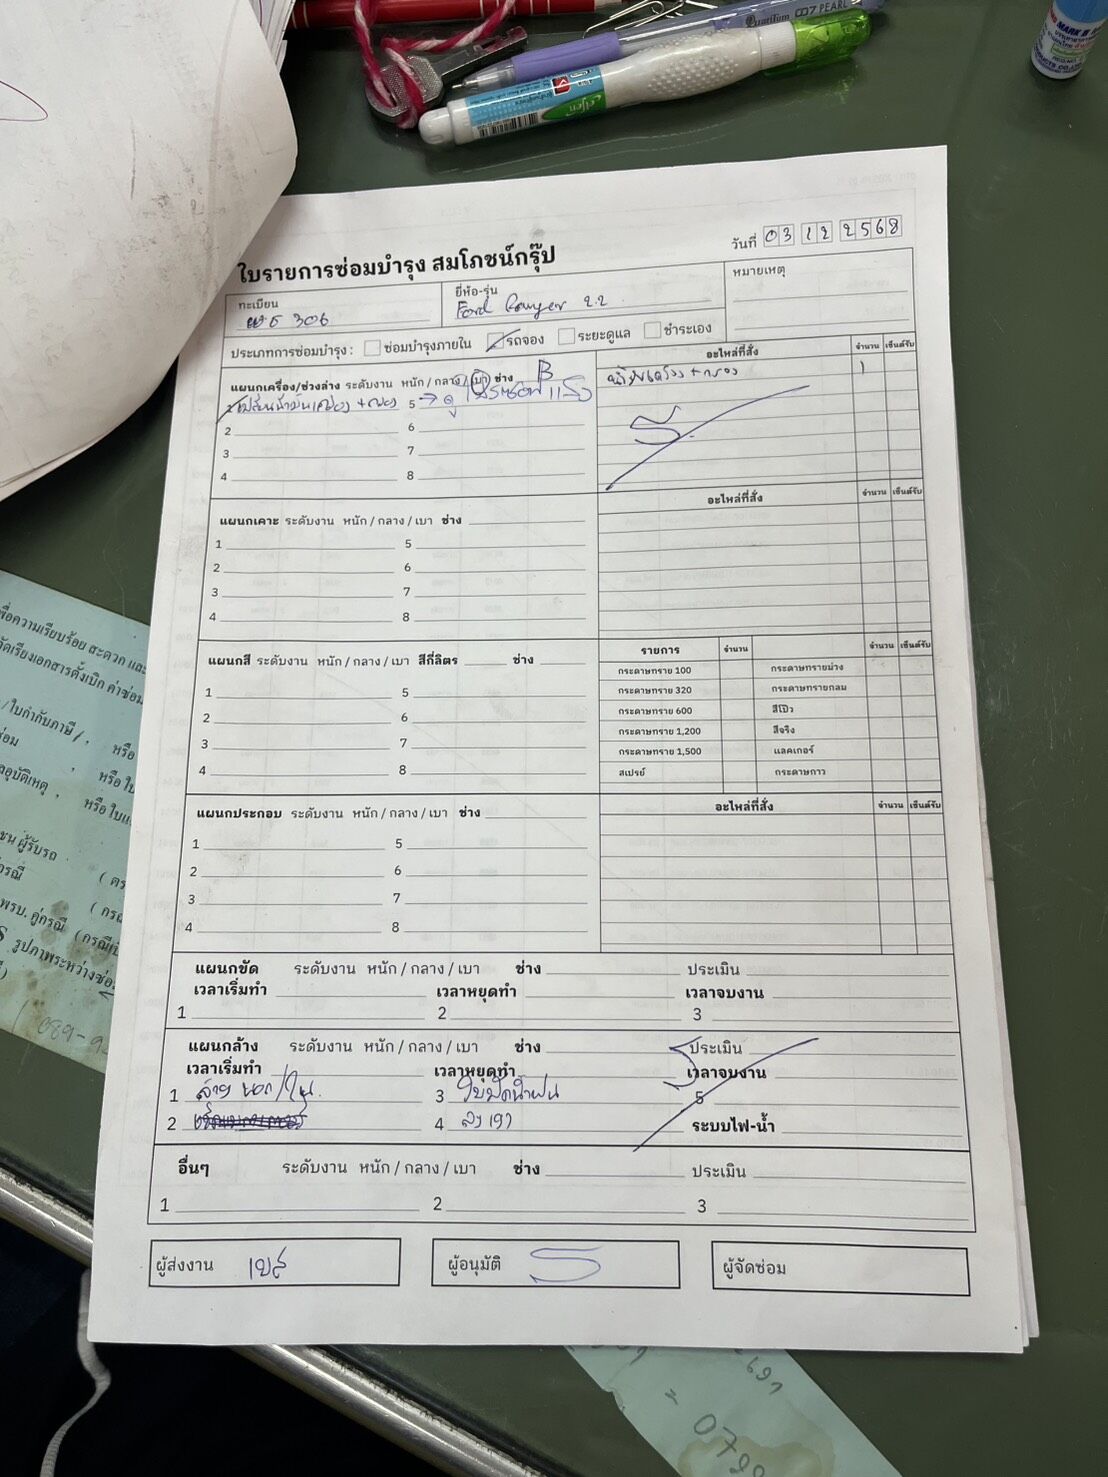 Quantum 007 PEARL
ใบรายการซ่อมบำรุง สมโภชน์กรุ๊ป
วันที่ 03 12 2568
ทะเบียน
306
ยี่ห้อ-รุ่น
Ford Ranger 2.2
หมายเหตุ
ประเภทการซ่อมบำรุง : ซ่อมบำรุงภายใน รถจอง ระยะดูแล ชำระเอง
แผนกเครื่อง/ช่วงล่าง ระดับงาน หนัก / กลาง / เบา ช่าง B
อะไหล่ที่สั่ง จำนวน เซ็นต์รับ
1
1 เปลี่ยนน้ำมันเครื่อง + กรอง 5 → ดู
2 6
3 7
4 8
แผนกเคาะ ระดับงาน หนัก / กลาง / เบา ช่าง
อะไหล่ที่สั่ง จำนวน เซ็นต์รับ
1 5
2 6
3 7
4 8
แผนกสี ระดับงาน หนัก / กลาง / เบา สีกี่ลิตร ช่าง
รายการ จำนวน จำนวน เซ็นต์รับ
1 5
2 6
3 7
4 8
กระดาษทราย 100 กระดาษทรายม่วง
กระดาษทราย 320 กระดาษทรายกลม
กระดาษทราย 600 สีโป๊ว
กระดาษทราย 1,200 สีจริง
กระดาษทราย 1,500 แลคเกอร์
สเปรย์ กระดาษกาว
แผนกประกอบ ระดับงาน หนัก / กลาง / เบา ช่าง
อะไหล่ที่สั่ง จำนวน เซ็นต์รับ
1 5
2 6
3 7
4 8
แผนกขัด ระดับงาน หนัก / กลาง / เบา ช่าง ประเมิน
เวลาเริ่มทำ เวลาหยุดทำ เวลาจบงาน
1 2 3
แผนกล้าง ระดับงาน หนัก / กลาง / เบา ช่าง ประเมิน
เวลาเริ่มทำ เวลาหยุดทำ เวลาจบงาน
1 ล้าง นอก/ใน 3 ใบปัดน้ำฝน 5
2 4 ลงเงา ระบบไฟ-น้ำ
อื่นๆ ระดับงาน หนัก / กลาง / เบา ช่าง ประเมิน
1 2 3
ผู้ส่งงาน
ผู้อนุมัติ
ผู้จัดซ่อม
เพื่อความเรียบร้อย สะดวก และ
จัดเรียงเอกสารตั้งเบิก ค่าซ่อม
/ใบกำกับภาษี / , หรือ
, หรือ ใบ
อุบัติเหตุ , หรือ ใบ
ผู้รับรถ
พรบ. คู่กรณี
รูปภาพระหว่างซ่อม